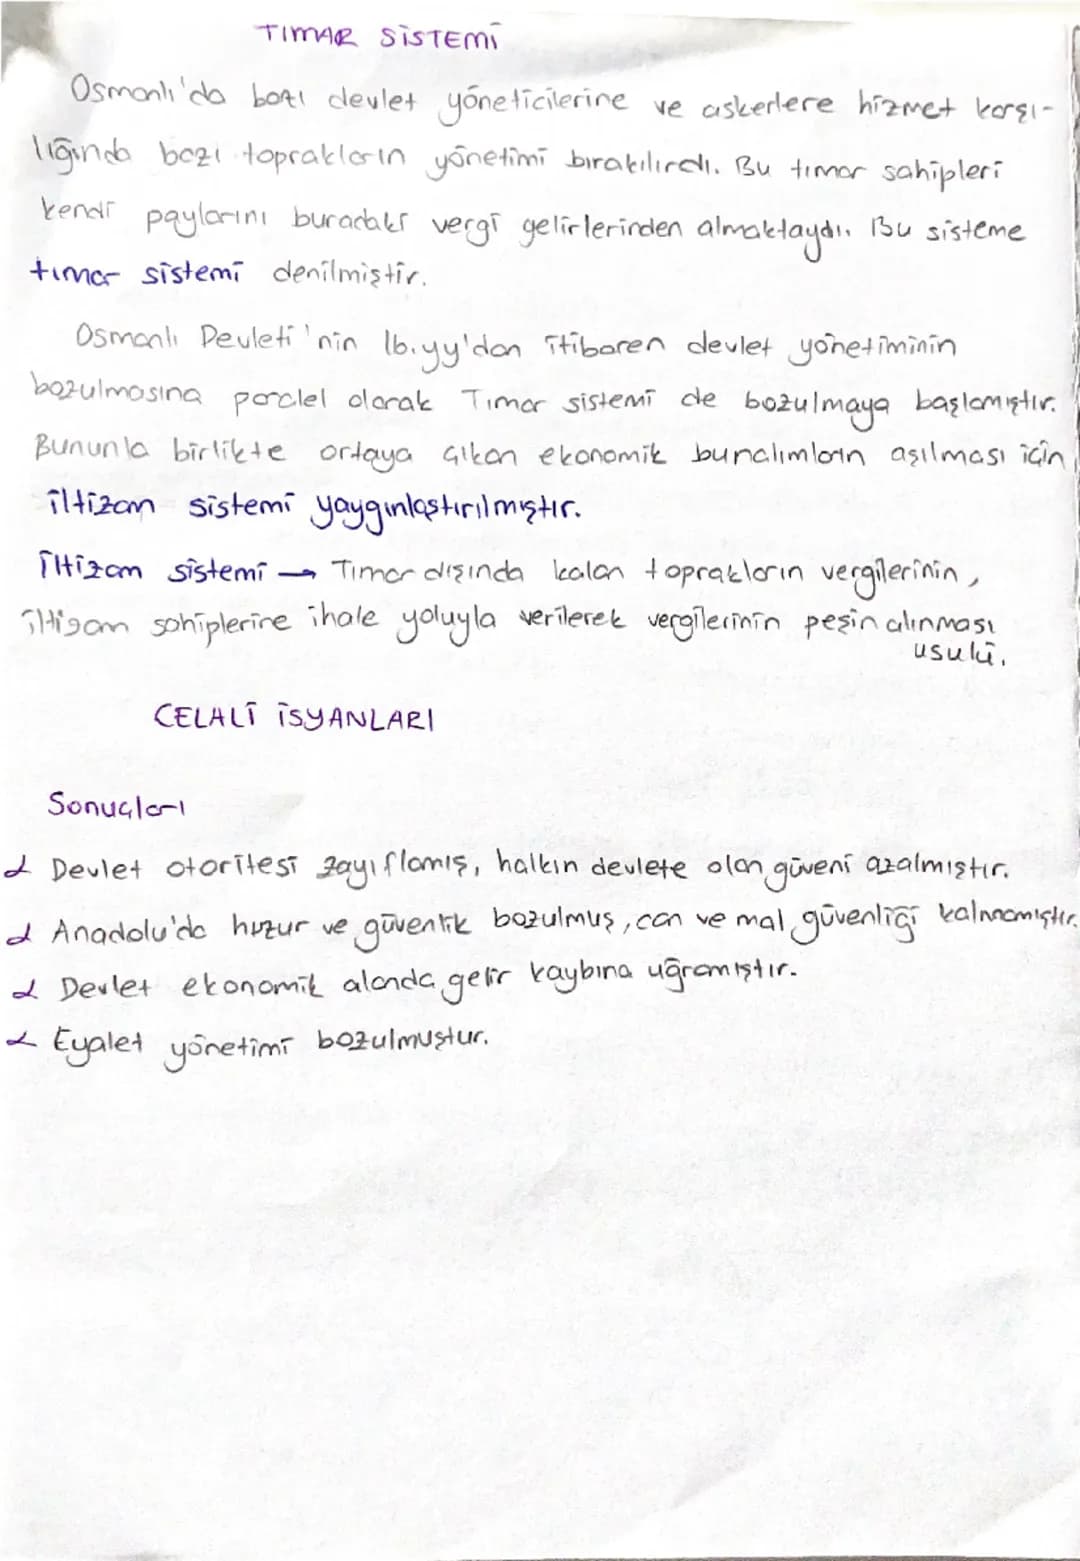 TIMAR SİSTEMİ
Osmanlı'da bazı devlet yöneticilerine ve askerlere hizmet karşı-
lığında bazı toprakların yönetimi bırakılırdı. Bu tımar sahipleri
kendi paylarını buradaki vergi gelirlerinden almaktaydı. Bu sisteme
tımar sistemi denilmiştir.
Osmanlı Devleti'nin 16.yy'dan itibaren devlet yönetiminin
bozulmasına paralel olarak Tımar sistemi de bozulmaya başlamıştır.
Bununla birlikte ortaya çıkan ekonomik bunalımların aşılması için
iltizam sistemi yaygınlaştırılmıştır.
İltizam sistemi → Tımar dışında kalan toprakların vergilerinin,
iltizam sahiplerine ihale yoluyla verilerek vergilerinin peşin alınması
usulü.
CELALİ İSYANLARI
Sonuçları
Devlet otoritesi zayıflamış, halkın devlete olan güveni azalmıştır.
Anadolu'da huzur ve güvenlik bozulmuş, can ve mal güvenliği kalmamıştır.
Devlet ekonomik alanda gelir kaybına uğramıştır.
Eyalet yönetimi bozulmuştur.